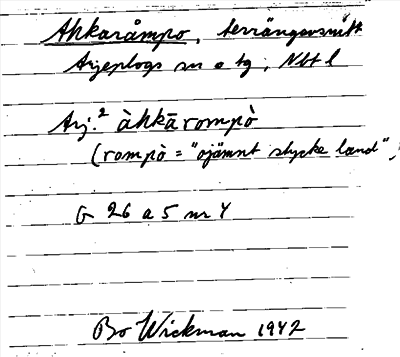 Ahkaråmpo, terrängavsnitt
Arjeplogs sn o tg, Nbt l
Arj.² àhkārompò
(rompò = "ojämnt stycke land",
G 26 a 5 nr 4
Bo Wickman 1942